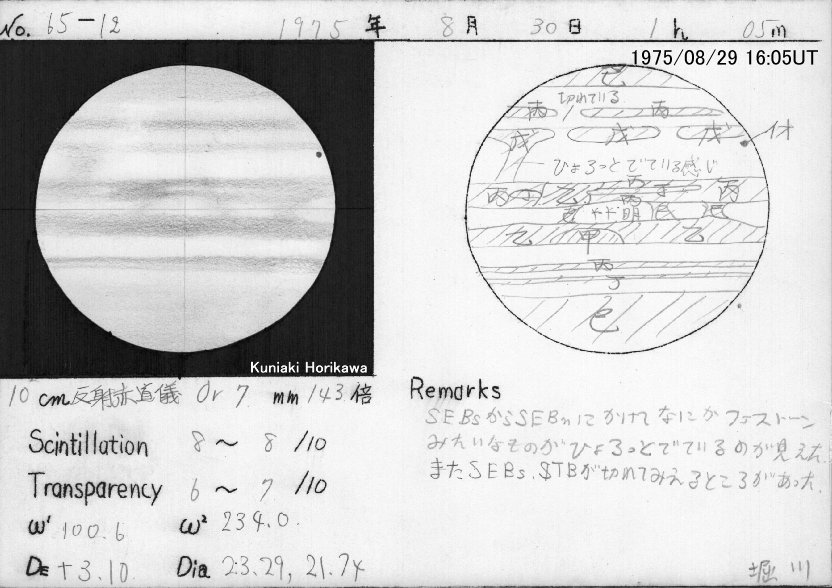 No. 65-12 1975年 8月 30日 1h 05m
1975/08/29 16:05UT
己
切れている
丙 丙
戊 戊 戊 イオ
ひょろっとでている感じ
丙
丙 丁 丙
丙
やや明
乙 甲 乙
丙
丁
己
Kuniaki Horikawa
10cm 反射赤道儀 Or 7 mm 143倍
Scintillation 8～8/10
Transparency 6～7/10
ω¹ 100.6 ω² 234.0.
DE +3.10 Dia 23.29, 21.74
Remarks
SEBsからSEBnにかけてなにかフェストーン
みたいなものがひょろっとでているのが見えた.
またSEBs, STBが切れてみえるところがあった.
堀川